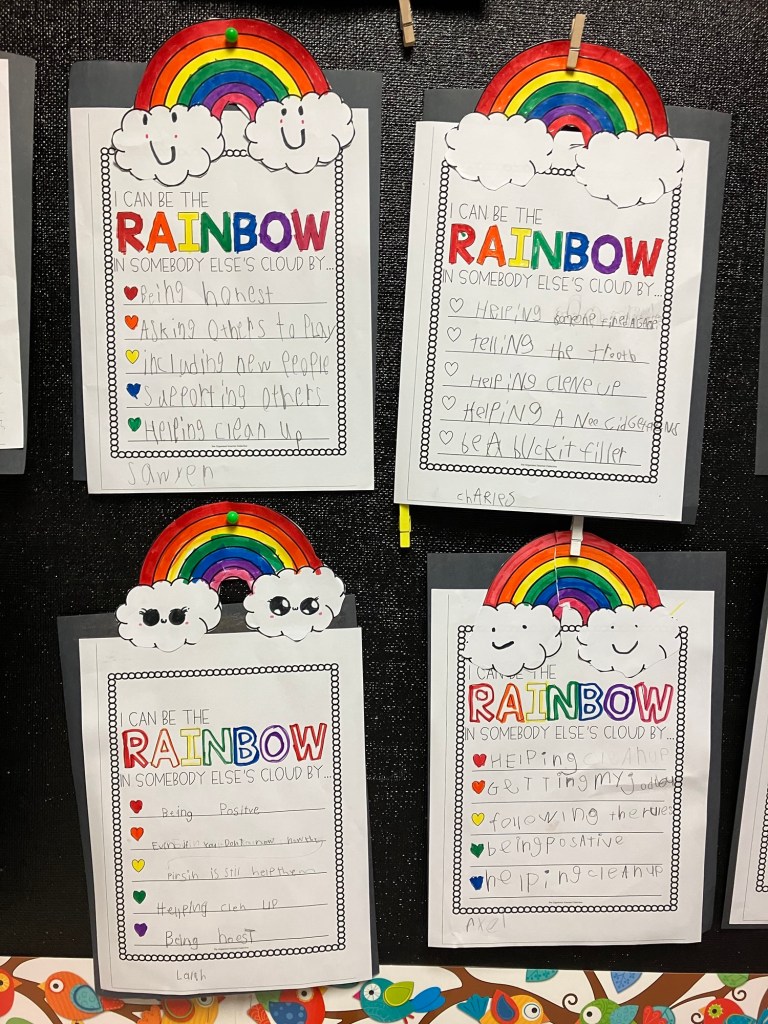 I CAN BE THE
RAINBOW
IN SOMEBODY ELSE'S CLOUD BY...
Being honest
Asking others to Play
including new people
Supporting others
Helping clean up
Sawyen
I CAN BE THE
RAINBOW
IN SOMEBODY ELSE'S CLOUD BY...
HeLping someone
telliNg the trooth
HeLpiNg cLeNe up
HeLPiNG A Nee
be A bUckit filler
chARLes
I CAN BE THE
RAINBOW
IN SOMEBODY ELSE'S CLOUD BY...
Being Positve
You Don't
Pirsin is still help them
Hellping cleh UP
Being honest
I CAN BE THE
RAINBOW
IN SOMEBODY ELSE'S CLOUD BY...
HELPing cleanup
GeTTing my
following the rules
being posative
helping cleanup
Axel